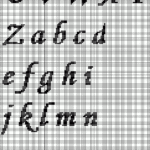 Z a b c d
e f g h i
j k l m n